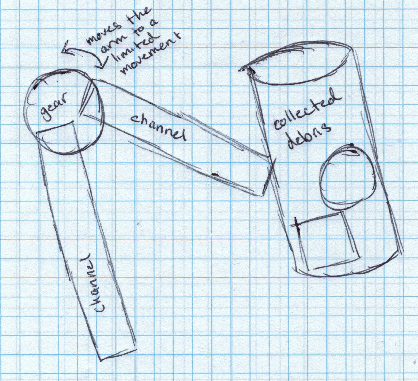 moves the
arm to a
limited
movement
gear
channel
collected
debris
channel